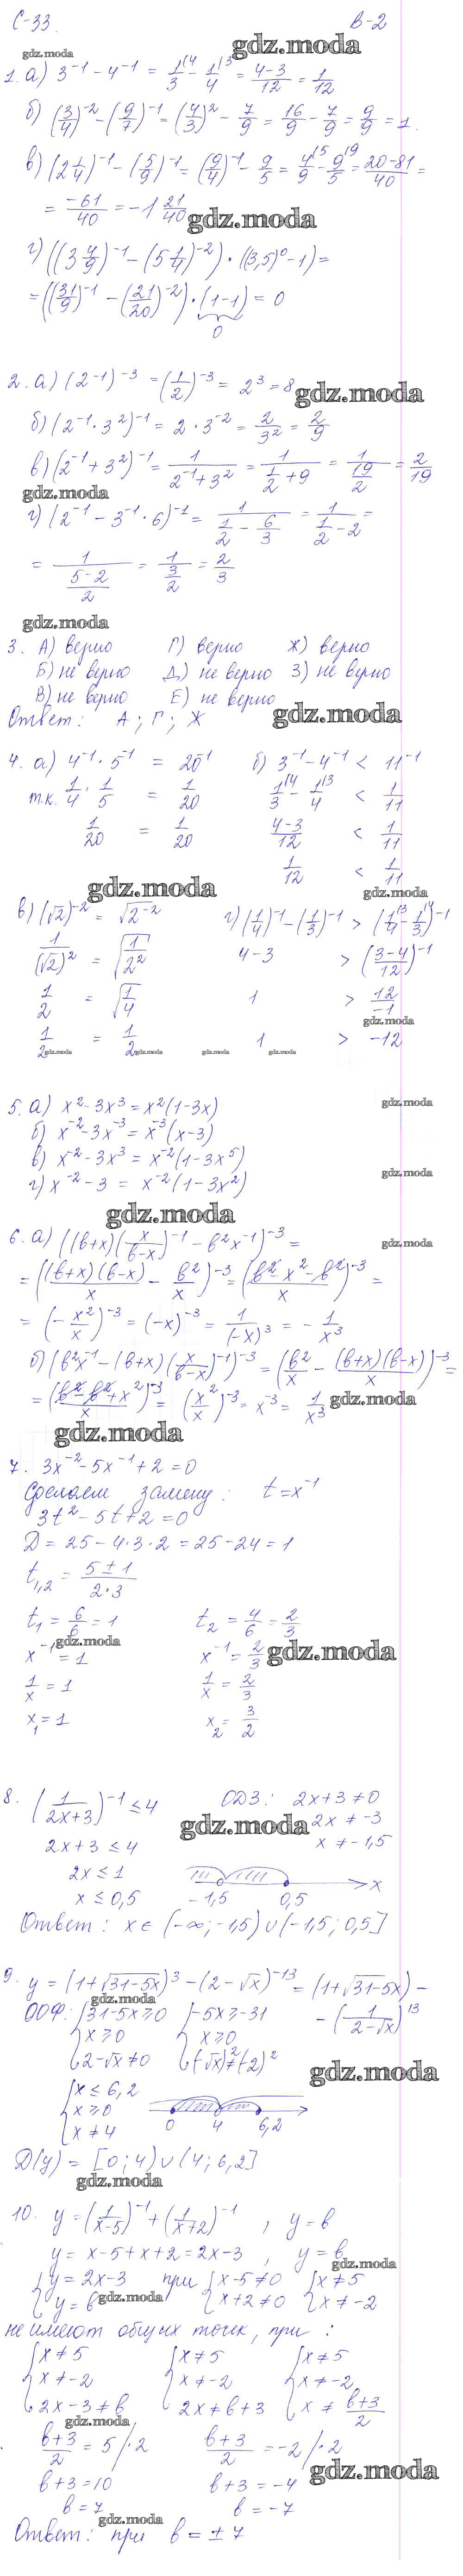 С-33. В-2
gdz.moda gdz.moda
1. а) 3⁻¹ - 4⁻¹ = 1/3 - 1/4 = (4-3)/12 = 1/12
б) (3/4)⁻² - (9/7)⁻¹ = (4/3)² - 7/9 = 16/9 - 7/9 = 9/9 = 1.
в) (2 1/4)⁻¹ - (5/9)⁻¹ = (9/4)⁻¹ - 9/5 = 4/9 - 9/5 = (20-81)/40 =
= -61/40 = -1 21/40
gdz.moda
г) ((3 4/9)⁻¹ - (5 1/4)⁻²) · ((3,5)⁰ - 1) =
= ((31/9)⁻¹ - (21/20)⁻²) · (1-1) = 0
0
2. а) (2⁻¹)⁻³ = (1/2)⁻³ = 2³ = 8
gdz.moda
б) (2⁻¹ · 3²)⁻¹ = 2 · 3⁻² = 2/3² = 2/9
в) (2⁻¹ + 3²)⁻¹ = 1/(2⁻¹ + 3²) = 1/(1/2 + 9) = 1/(19/2) = 2/19
gdz.moda
г) (2⁻¹ - 3⁻¹ · 6)⁻¹ = 1/(1/2 - 6/3) = 1/(1/2 - 2) =
= 1/((5-2)/2) = 1/(3/2) = 2/3
gdz.moda
3. А) верно Г) верно Ж) верно
Б) не верно Д) не верно З) не верно
В) не верно Е) не верно
Ответ: А; Г; Ж
gdz.moda
4. а) 4⁻¹ · 5⁻¹ = 20⁻¹ б) 3⁻¹ - 4⁻¹ < 11⁻¹
т.к. 1/4 · 1/5 = 1/20 1/3 - 1/4 < 1/11
1/20 = 1/20 (4-3)/12 < 1/11
1/12 < 1/11
gdz.moda gdz.moda
в) (√2)⁻² = √2⁻² г) (1/4)⁻¹ - (1/3)⁻¹ > (1/4 - 1/3)⁻¹
1/(√2)² = √(1/2²) 4-3 > ((3-4)/12)⁻¹
1/2 = √(1/4) 1 > 12/-1
gdz.moda
1/2 = 1/2 1 > -12
gdz.moda gdz.moda gdz.moda gdz.moda
gdz.moda
5. а) x² - 3x³ = x²(1-3x)
б) x⁻² - 3x⁻³ = x⁻³(x-3)
в) x⁻² - 3x³ = x⁻²(1-3x⁵)
gdz.moda
г) x⁻² - 3 = x⁻²(1-3x²)
gdz.moda
6. а) ((b+x)(x/(b-x))⁻¹ - b²x⁻¹)⁻³ =
gdz.moda
= ((b+x)(b-x)/x - b²/x)⁻³ = ((b²-x²-b²)/x)⁻³ =
= (-x²/x)⁻³ = (-x)⁻³ = 1/(-x)³ = -1/x³
б) (b²x⁻¹ - (b+x)(x/(b-x))⁻¹)⁻³ = (b²/x - (b+x)(b-x)/x)⁻³ =
= ((b²-b²+x²)/x)⁻³ = (x²/x)⁻³ = x⁻³ = 1/x³
gdz.moda
gdz.moda
7. 3x⁻² - 5x⁻¹ + 2 = 0
Сделаем замену: t = x⁻¹
3t² - 5t + 2 = 0
D = 25 - 4·3·2 = 25 - 24 = 1
t₁,₂ = (5±1)/(2·3)
t₁ = 6/6 = 1 t₂ = 4/6 = 2/3
gdz.moda
x⁻¹ = 1 x⁻¹ = 2/3
gdz.moda
1/x = 1 1/x = 2/3
x₁ = 1 x₂ = 3/2
8. (1/(2x+3))⁻¹ ≤ 4 ОДЗ: 2x+3 ≠ 0
gdz.moda
2x+3 ≤ 4 2x ≠ -3
x ≠ -1,5
2x ≤ 1
x ≤ 0,5 -1,5 0,5 x
Ответ: x ∈ (-∞; -1,5) ∪ (-1,5; 0,5]
9. y = (1+√(31-5x))³ - (2-√x)⁻¹³ = (1+√(31-5x)) -
gdz.moda
- (1/(2-√x))¹³
ООФ: {31-5x ≥ 0 {-5x ≥ -31
x ≥ 0 x ≥ 0
2-√x ≠ 0 (-√x)² ≠ (-2)²
gdz.moda
{x ≤ 6,2
x ≥ 0
x ≠ 4 0 4 6,2
D(y) = [0; 4) ∪ (4; 6,2]
gdz.moda
10. y = (1/(x-5))⁻¹ + (1/(x+2))⁻¹, y = b
y = x-5+x+2 = 2x-3, y = b
gdz.moda
{y = 2x-3 при {x-5 ≠ 0 {x ≠ 5
y = b x+2 ≠ 0 x ≠ -2
gdz.moda
не имеют общих точек, при:
{x ≠ 5 {x ≠ 5 {x ≠ 5
x ≠ -2 x ≠ -2 x ≠ -2
2x-3 ≠ b 2x ≠ b+3 x ≠ (b+3)/2
gdz.moda
(b+3)/2 = 5 /·2 (b+3)/2 = -2 /·2
gdz.moda
b+3 = 10 b+3 = -4
b = 7 b = -7
gdz.moda
Ответ: при b = ±7